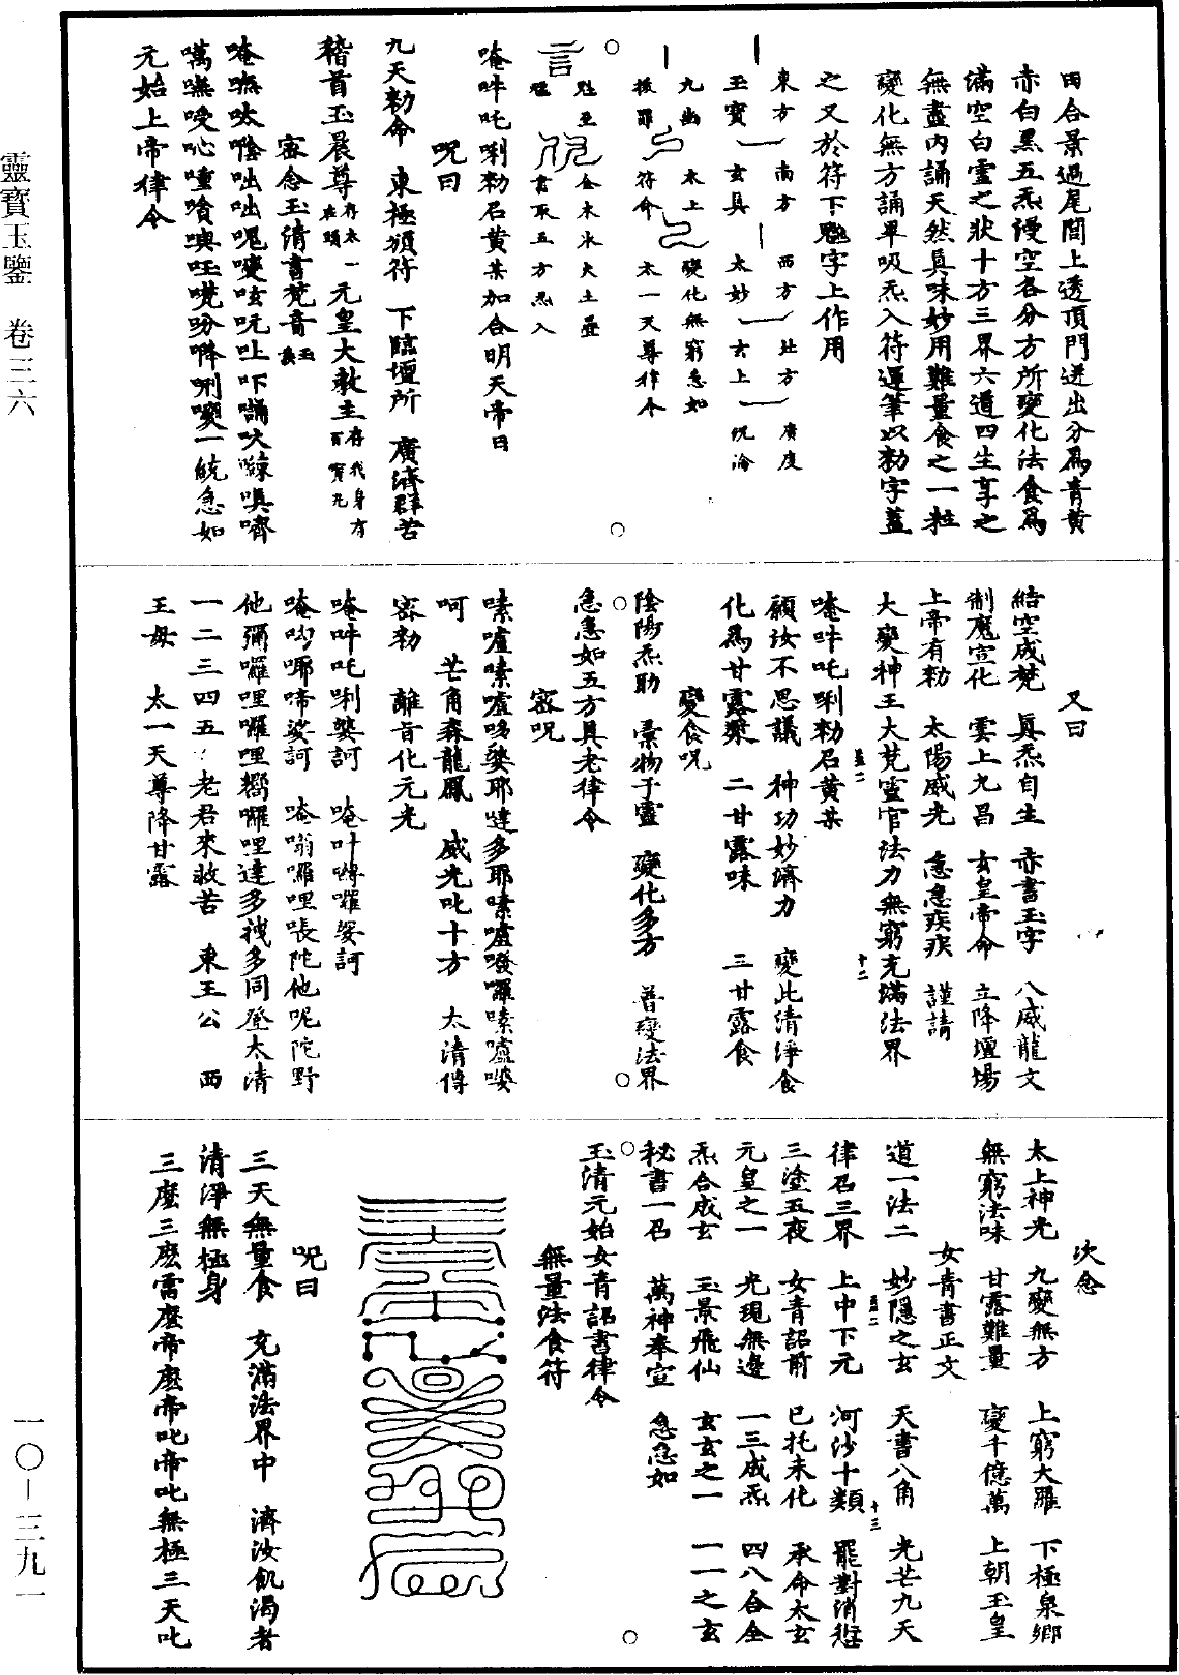 靈寶玉鑒 卷三六
一〇—三九一
田合景過尾閭上透頂門迸出分爲青黄
赤白黑五炁漫空各分方所變化法食爲
滿空白雪之狀十方三界六道四生享之
無盡內誦天然真味妙用難量食之一粒
變化無方誦畢吸炁入符運筆以勑字蓋
之又於符下魓字上作用
東方 南方 西方 北方 廣度
玉寶 玄真 太妙 玄上 沉淪
九幽 太上 變化無窮急如
拔罪 符命 太一天尊律令
金木水火土壘
書取五方炁入
唵吽吒唎勑召黄某加合明天帝日
呪曰
九天勑命 東極頒符 下臨壇所 廣濟群苦
稽首玉晨尊存太一在頭元皇大教主存我身有百寶光
密念玉清書梵音
元始上帝律令
又曰
結空成梵 真炁自生 赤書玉字 八威龍文
制魔宣化 雲上九昌 玄皇帝命 立降壇場
上帝有勑 太陽威光 急急疾疾 謹請
大變神王大梵靈官法力無窮充滿法界
唵吽吒唎勑召黄某
願汝不思議 神功妙濟力 變此清淨食
化爲甘露漿 二甘露味 三甘露食
變食呪
陰陽炁助 稟物于靈 變化多方 普變法界
急急如五方真老律令
密呪
嗉嚧嗉嚧哆婆耶達多耶嗉嚧㗶囉嗉嚧婆
呵 芒角森龍鳳 威光叱十方 太清傳
密勑 離旨化元光
唵吽吒唎婆訶 唵叶囀囉娑訶
唵呴耶啼娑訶 唵嗡囉哩㗊陀他呢陀野
他彌囉哩囉哩嚮囉哩達多拽多同登太清
一二三四五 老君來救苦 東王公 西
王母 太一天尊降甘露
次念
太上神光 九變無方 上窮大羅 下極泉鄉
無窮法味 甘露難量 變千億萬 上朝玉皇
女青書正文
道一法二 妙隱之玄 天書八角 光芒九天
律召三界 上中下元 河沙十類 罷對消愆
三塗五夜 女青詔前 已托未化 承命太玄
元皇之一 光現無邊 一三成炁 四八合全
炁合成玄 玉景飛仙 玄玄之一 一一之玄
秘書一召 萬神奉宣 急急如
玉清元始女青詔書律令
無量法食符
呪曰
三天無量食 充滿法界中 濟汝飢渴者
清淨無極身
三麼三麽雷麼帝麽帝叱帝叱無極三天叱